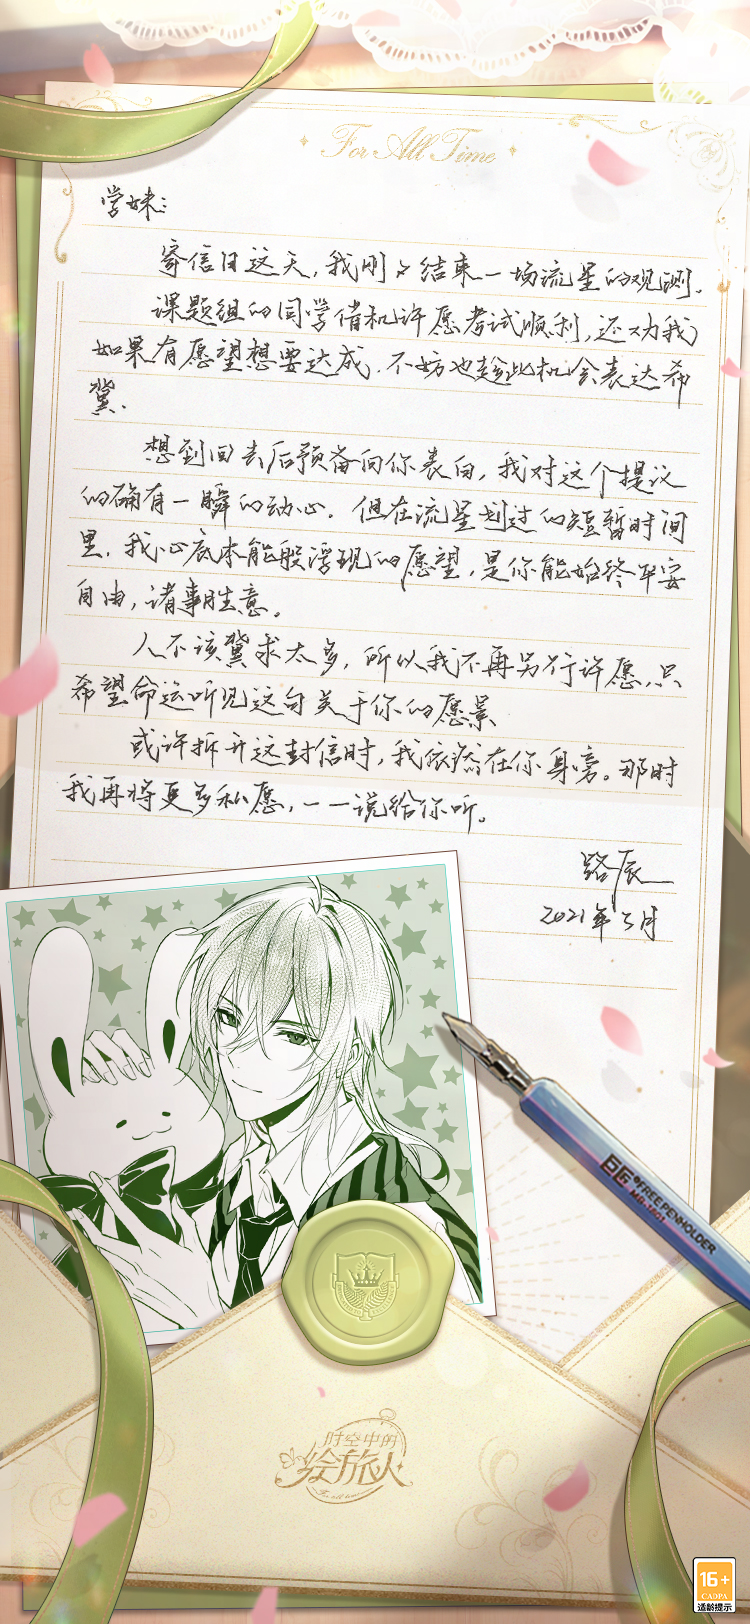 For All Time
学妹:
寄信日这天,我刚刚结束一场流星的观测。
课题组的同学借机许愿考试顺利,还劝我
如果有愿望想要达成,不妨也趁此机会表达希
冀。
想到回去后预备向你表白,我对这个提议
的确有一瞬的动心。但在流星划过的短暂时间
里,我心底本能般浮现的愿望,是你能始终平安
自由,诸事胜意。
人不该冀求太多,所以我不再另行许愿,只
希望命运听见这句关于你的愿景
或许拆开这封信时,我依然在你身旁。那时
我再将更多私愿,一一说给你听。
路辰
2021年5月
FREEPENHOLDER
时空中的
绘旅人
For all time
16+
CADPA
适龄提示